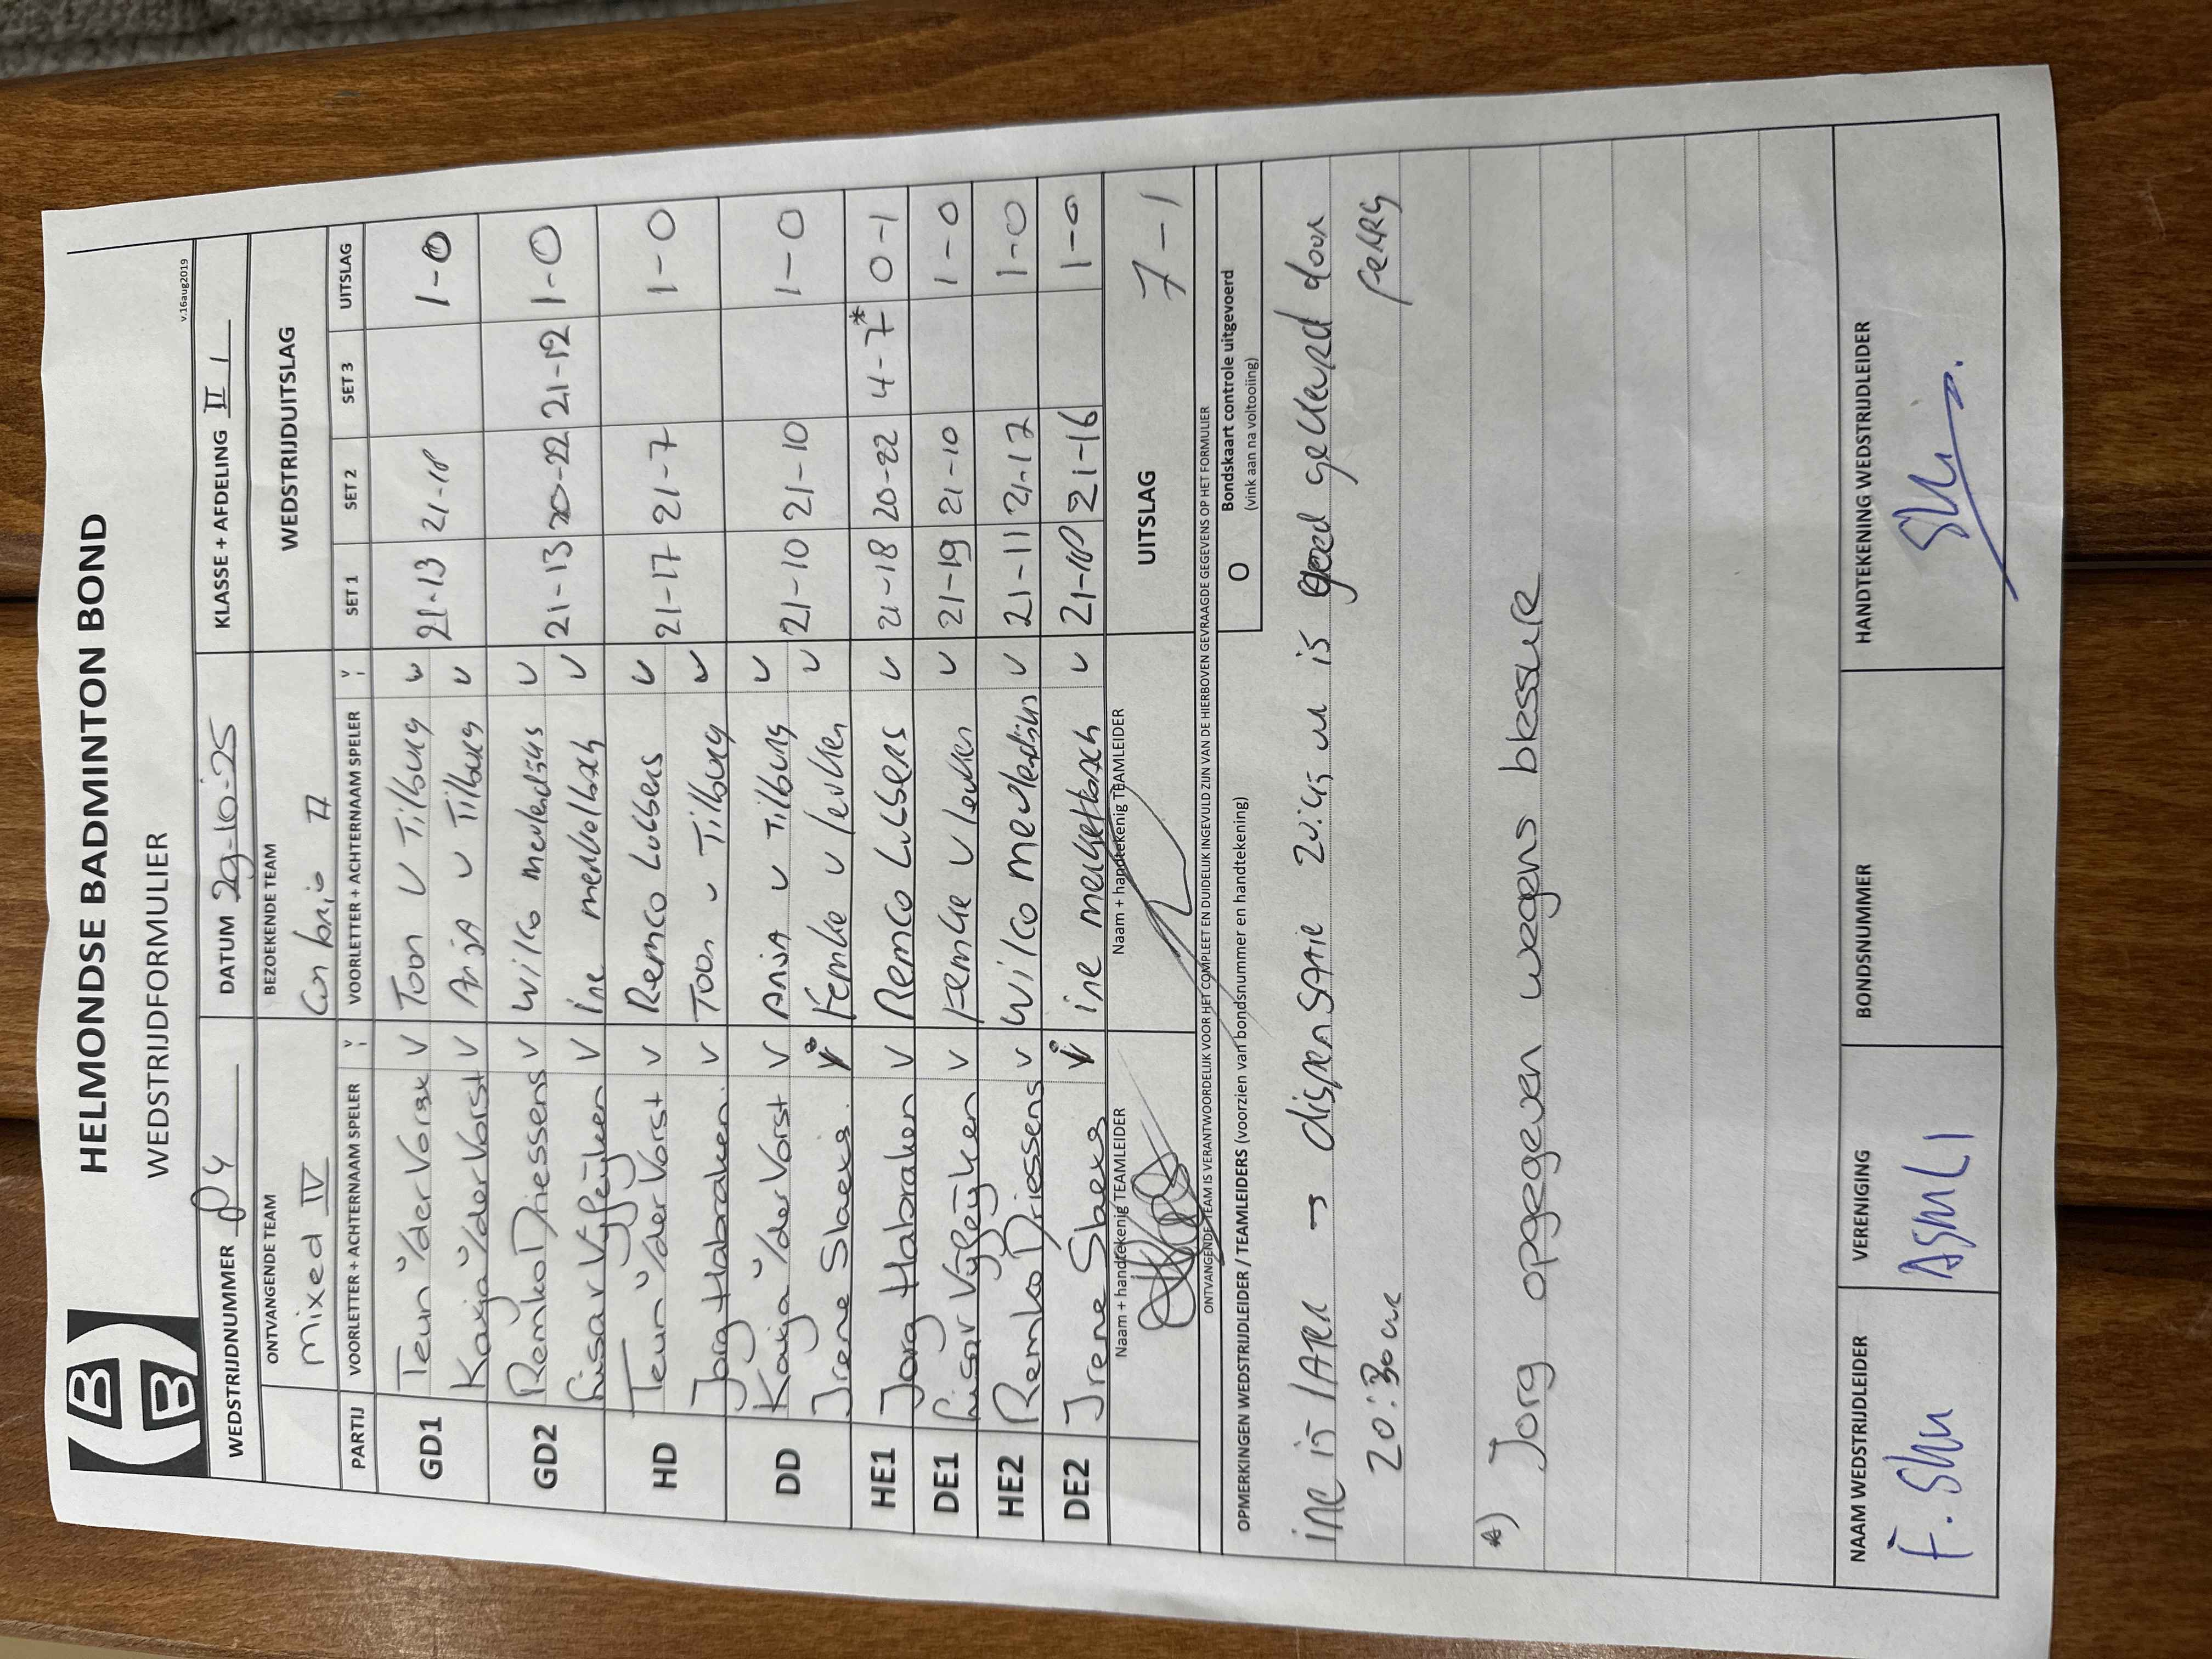 HELMONDSE BADMINTON BOND
WEDSTRIJDFORMULIER
v.16aug2019
WEDSTRIJDNUMMER P4 DATUM 29-10-25 KLASSE + AFDELING II 1
ONTVANGENDE TEAM BEZOEKENDE TEAM WEDSTRIJDUITSLAG
mixed IV Con brio 17
PARTIJ VOORLETTER + ACHTERNAAM SPELER V VOORLETTER + ACHTERNAAM SPELER V SET 1 SET 2 SET 3 UITSLAG
GD1 Teun v/der Vorst V Toon V Tilburg v 21-13 21-18 1-0
Kaija v/der Vorst V Anja v Tilburg v
GD2 Remko Driessens V Wilco meulendijks v 21-13 20-22 21-12 1-0
Lisar Vijfeijken V Ine merkelbach v
HD Teun v/der Vorst V Remco Lubbers v 21-17 21-7 1-0
Jorg Habraken V Toon v Tilburg v
DD Kaija v/der Vorst V Anja v Tilburg v 21-10 21-10 1-0
Irene Slaets V Femke v leuken v
HE1 Jorg Habraken V Remco Lubbers v 21-18 20-22 4-7* 0-1
DE1 Lisar Vijfeijken V Femke V leuken v 21-19 21-10 1-0
HE2 Remko Driessens V Wilco meulendijks v 21-11 21-17 1-0
DE2 Irene Slaets V ine merkelbach v 21-18 21-16 1-0
Naam + handtekenig TEAMLEIDER Naam + handtekenig TEAMLEIDER UITSLAG 7-1
ONTVANGENDE TEAM IS VERANTWOORDELIJK VOOR HET COMPLEET EN DUIDELIJK INGEVULD ZIJN VAN DE HIERBOVEN GEVRAAGDE GEGEVENS OP HET FORMULIER
OPMERKINGEN WEDSTRIJDLEIDER / TEAMLEIDERS (voorzien van bondsnummer en handtekening) O Bondskaart controle uitgevoerd
(vink aan na voltooiing)
ine is later → dispensatie 20:45 uu is goed gekeurd door
20:30 uur ferry
*) Jorg opgegeven wegens blessure
NAAM WEDSTRIJDLEIDER VERENIGING BONDSNUMMER HANDTEKENING WEDSTRIJDLEIDER